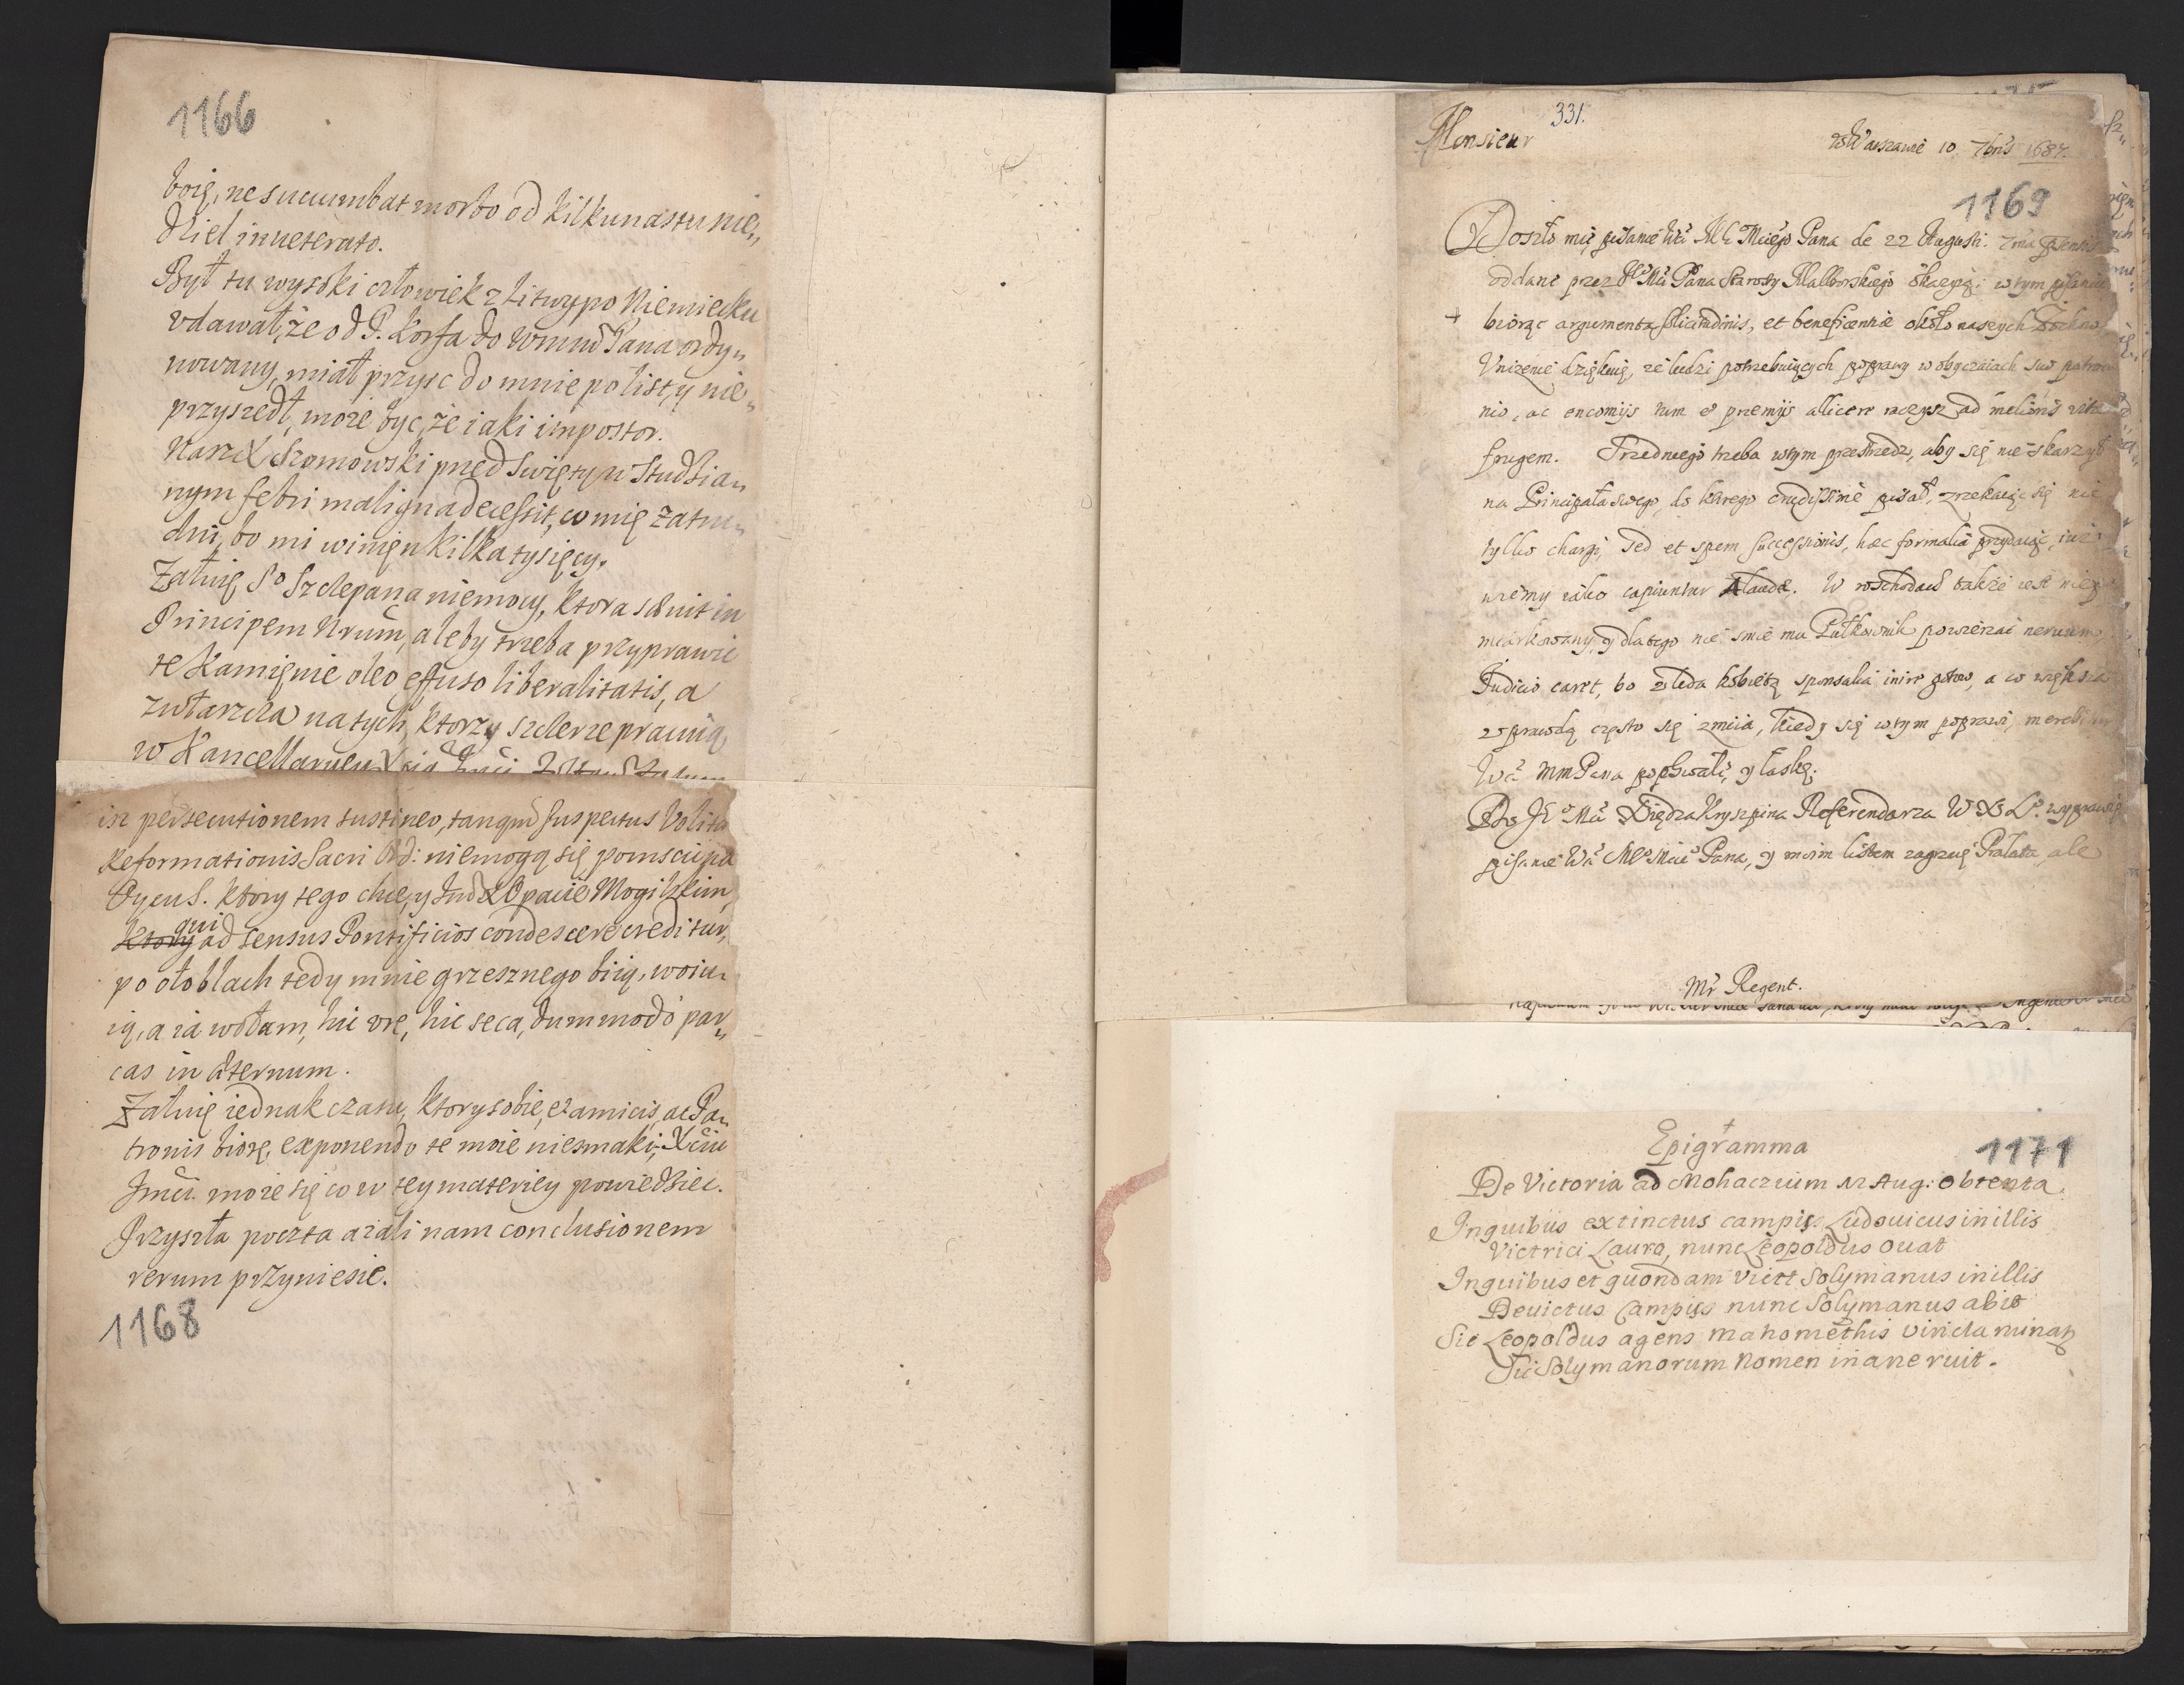 1166
boię, ne sucumbat morbo od kilkunastu nie„
dziel inueterato.
Był tu wysoki człowiek z litwy po Niemiecku
vdawał, że od P. Korfa do Wmm Pana ordy„
nowany, miał przysc do mnie po listy, y nie„
przyszedł, może byc, że iaki impostor.
Nasz X Szomowski przed Swięty w Studzian„
nym febri maligna decessit, co mię zatru„
dni, bo mi winięn kilka tysięcy.
Załuię So Szczepana niemocy, ktora sęuit in
Principem Nrum, aleby trzeba przyprawic
te Kamięnie oleo effuso liberalitatis, a
zwłaszcza na tych, ktorzy szczerze pracuią
w Kancellaryey
in persecutionem sustineo, tanqm suspectus
Reformationis Sacri Ord: niemogą się pomscic na
Oycu S. ktory tego chce, y tudz X Opacie Mogilskim,
qui
ktory ad sensus Pontificios condescere creditur,
po otoblach tedy mnie grzesznego biią, woiu„
ią, a ia wołam, hic vre, hic seca, dummodo par„
cas in æternum.
Załuię iednak czasu, ktory sobie, et amicis, ac Pa„
tronis biorę, exponendo te moie niesmaki, Xciu
Jmci. może się co w tey materiey powiedziec.
Przyszła poczta azali nam conclusionem
rerum przyniesie.
1168
331.
Monsieur
w Warszawie 10 7bris 1687.
1169
Doszło mię pisanie Wci Mć Mciego Pana de 22 Augusti. 7ma
oddane przez Pana Starosty Malborskiego w tym pisaniu
biorąc argumenta et beneficentiæ około naszych
Vniżenie dziękuię, że ludzi potrzebuiących poprawy w obyczaiach suo patroci
nio, ac encomijs tum et præmijs allicere raczysz ad melioris vitæ
frugem. Przedniego trzeba w tym przestrzedz, aby się nie skarzył
na Principała swego, do ktorego pisał, zrzekaiąc się nie
tylko chargi, sed et spem successionis, hæc formalia przydaiąc, iuż
wiemy iako capiuntur Alaudæ. W roschodach także iest
miarkowany, y dlatego nie smie mu Pułkownik powierzać
Judicio caret, bo z leda kobietą sponsalia inire gotow, a co większa
z prawdą często się zmiia, kiedy się w tym poprawi,
Wci MmPana pochwałę, y łaskę.
Do JE Mci Xiędza Kryszpina Referendarza W X L. wyprawię
pisanie Wci MMciei Pana, y moim listem zagrzeię Prałata, ale
Mr Regent.
1171
Epigramma
De Victoria ad Mohaczium 12 Aug: obtenta.
In quibus extinctus campis Ludouicus in illis
Victrici Lauro, nunc Leopoldus ouat
In quibus et quondam vicit Solymanus in illis
Deuictus Campis nunc Solymanus abit
Sic Leopoldus agens mahomethis vincla minatq
Sic Solymanorum Nomen inane ruit.